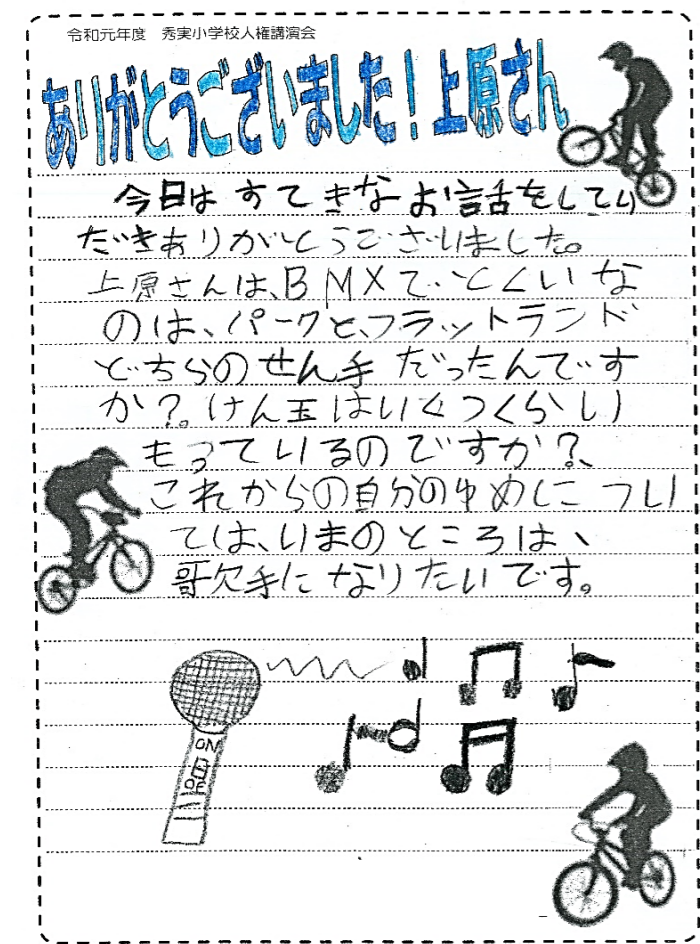 令和元年度　秀実小学校人権講演会
ありがとうございました！上原さん
今日は すてきなお話をしてい
だきありがとうございました。
上原さんは、BMXで、とくいな
のは、パークと、フラットランド
どちらのせん手だったんです
か？。けん玉はいくつくらい
もっているのですか？、
これからの自分のゆめについ
ては、いまのところは、
歌手になりたいです。
ON
OF